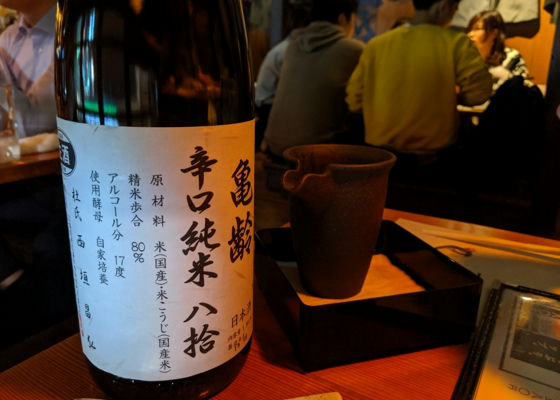 亀齢
辛口純米 八拾
原材料 米(国産)・米こうじ(国産米)
精米歩合 80%
アルコール分 17度
使用酵母 自家培養
杜氏 西垣昌弘
日本酒
酒